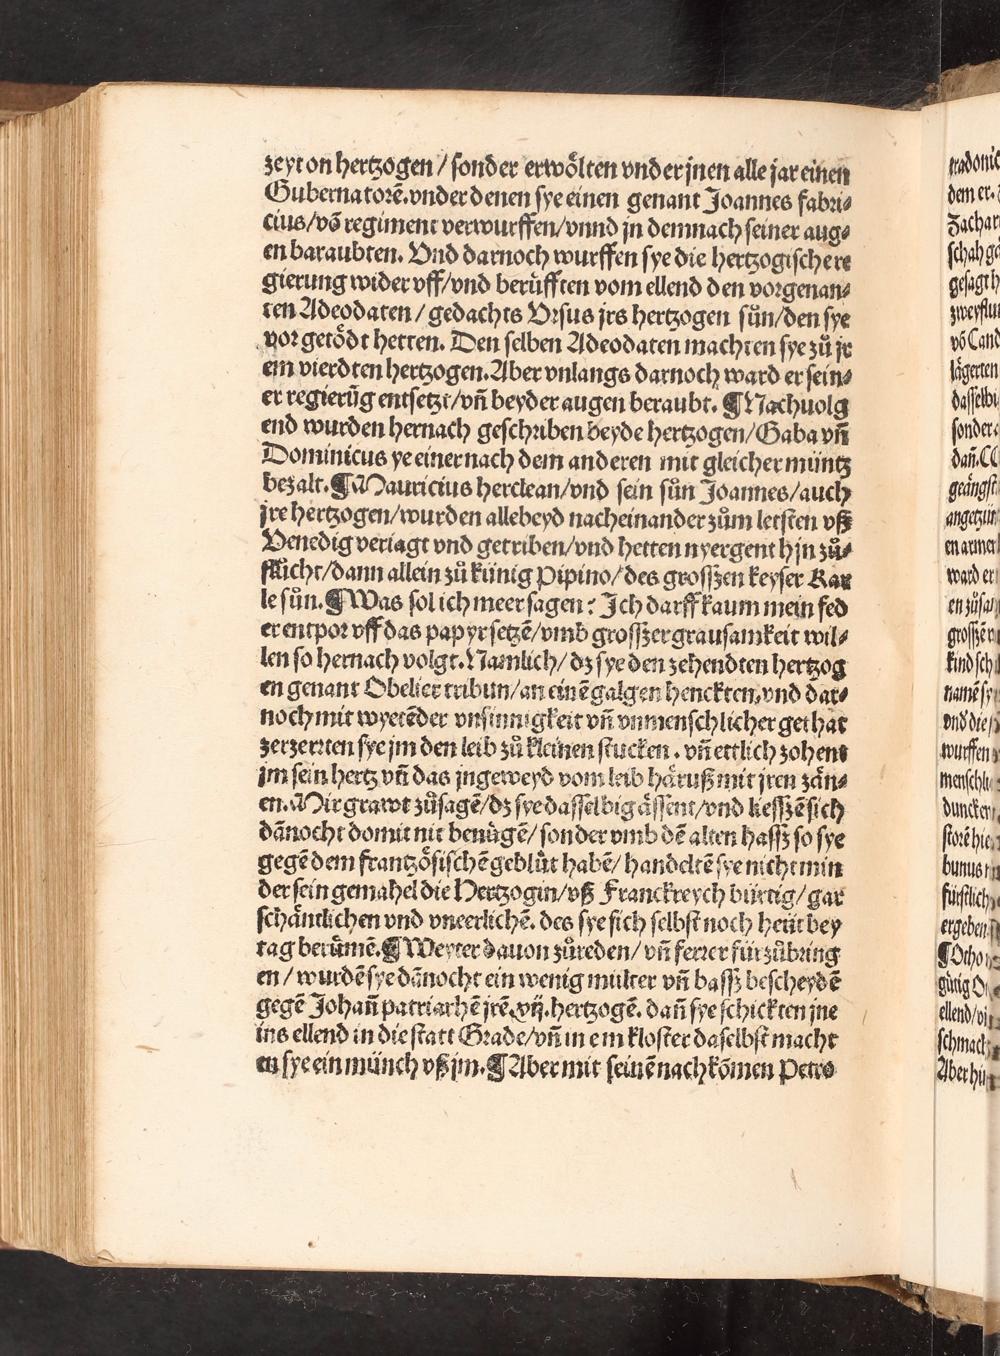 zeyt on hertzogen / sonder erwoͤlten vnder jnen alle jar einen
Gubernatorē. vnder denen sye einen genant Joannes fabri⸗
cius / vō regiment verwurffen / vnnd jn demnach seiner aug⸗
en baraubten. Vnd darnoch wurffen sye die hertzogische re
gierung wider vff / vnd beruͤfften vom ellend den vorgenan⸗
ten Adeodaten / gedachts Vrsus jrs hertzogen suͦn / den sye
vor getoͤdt hetten. Den selben Adeodaten machten sye zuͦ jr
em vierdten hertzogen. Aber vnlangs darnoch ward er sein⸗
er regierūg entsetzt / vn̄ beyder augen beraubt. ¶ Nachuolg
end wurden hernach geschriben beyde hertzogen / Gaba vn̄
Dominicus ye einer nach dem anderen mit gleicher müntz
bezalt. ¶ Mauricius herclean / vnd sein suͦn Joannes / auch
jre hertzogen / wurden allebeyd nacheinander zuͦm letsten vß
Venedig veriagt vnd getriben / vnd hetten nyergent hjn zuͦ⸗
flucht / dann allein zuͦ künig Pipino / des grosszen keyser Kar
le suͦn. ¶ Was sol ich meer sagen: Ich darff kaum mein fed
er entpor vff das papyr setzē / vmb grosszer grausamkeit wil⸗
len so hernach volgt. Namlich / dz sye den zehendten hertzog
en genant Obelier tribun / an einē galgen henckten, vnd dar⸗
noch mit wyetēder vnsinnigkeit vn̄ vnmenschlicher gethat
zerzerrten sye jm den leib zuͦ kleinen stucken. vn̄ ettlich zohent
jm sein hertz vn̄ das jngeweyd vom leib haͤruß mit jren zaͤn⸗
en. Mir grawt zuͦsagē / dz sye dasselbig aͤssent / vnd liesszē sich
dānocht domit nit benuͤgē / sonder vmb dē alten hassz so sye
gegē dem frantzoͤsischē gebluͤt habē / handeltē sye nicht min
der sein gemahel die Hertzogin / vß Franckreych bürtig / gar
schaͤntlichen vnd vneerlichē. des sye sich selbst noch heüt bey
tag beruͤmē. ¶ Weyter dauon zuͦreden / vn̄ ferrer für zuͦbring
en / wurdē sye dānocht ein wenig milter vn̄ bassz bescheydē
gegē Johan̄ patriarhē jrē .xvij. hertzogē. dan̄ sye schickten jne
ins ellend in die statt Grade / vn̄ in em kloster daselbst macht
en sye ein münch vß jm. ¶ Aber mit seinē nachkōmen Petro